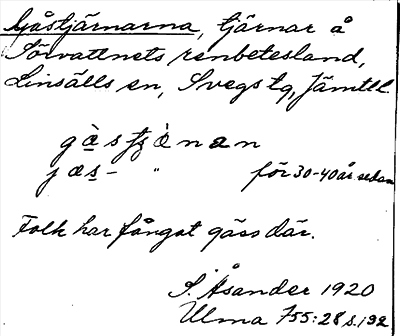 Gåstjärnarna, tjärnar å
Sörvattnets renbetesland,
Linsälls sn, Svegs tg, Jämtl.
gàstjὰnan
jas- " för 30-40 år sedan
Folk har fångat gäss där.
S. Åsander 1920
Ulma 755:28 s. 192